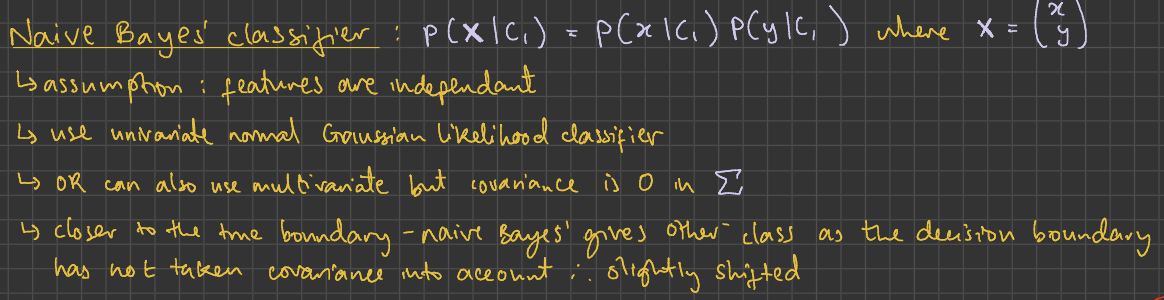 Naive Bayes' classifier : P(X|C₁) = P(x|C₁) P(y|C₁) where X = (x y)
↳ assumption : features are independant
↳ use univariate normal Gaussian likelihood classifier
↳ OR can also use multivariate but covariance is 0 in Σ
↳ closer to the true boundary - naive Bayes' gives other class as the decision boundary
has not taken covariance into account ∴ slightly shifted